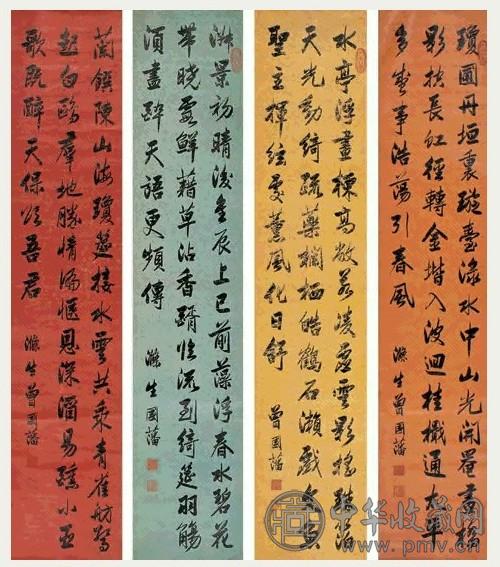 瓊圃丹垣裏璇臺淥水中山光開罨畫橋
影扶長虹徑轉金堦入波迴桂檝通太平
多事浩蕩引春風
滌生曾國藩
水亭浮畫棟高敞若凌虛雲影搖珠箔
天光動綺疏藥欄栖皓鶴石瀨戲文魚
聖主揮絃處薰風化日舒
曾國藩
淑景初晴後良辰上巳前藻浮春水碧花
帶曉露鮮藉草沾香醑臨流列綺筵羽觴
須盡醉天語更頻傳
滌生國藩
蘭饌陳山海瓊筵接水雲共乘青雀舫驚
起白鷗羣地勝情偏愜恩深酒易醺小臣
歌既醉天保頌吾君
滌生曾國藩
中华收藏网
www.pmv.cn